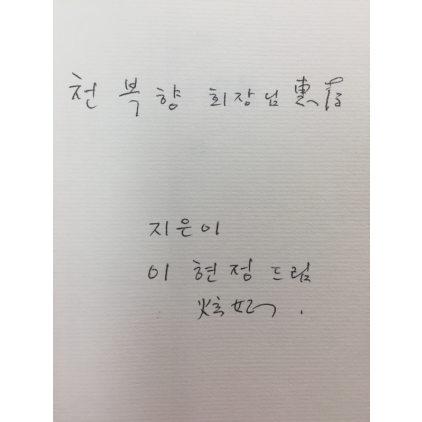 천 복 향 회장님 惠存
지은이
이 현 정 드림